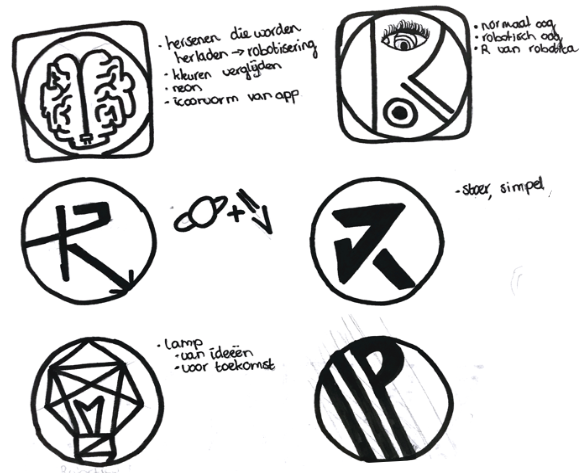 · hersenen die worden
herladen → robotisering
· kleuren verglijden
· neon
· icoonvorm van app
· normaal oog
· robotisch oog
· R van robotica
· stoer, simpel
· Lamp
· van ideeën
· voor toekomst